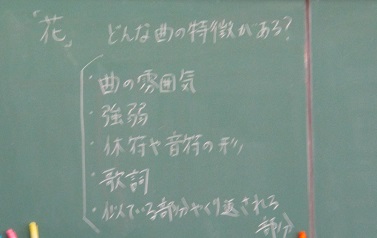 「花」 どんな曲の特徴がある?
・曲の雰囲気
・強弱
・休符や音符の形
・歌詞
・似ている部分やくり返される
部分